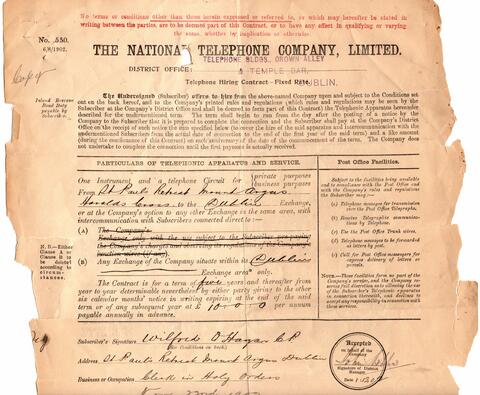 No terms or conditions other than those herein expressed or referred to, or which may hereafter be stated in
writing between the parties, are to be deemed part of this Contract, or to have any effect in qualifying or varying
the same, whether by implication or otherwise.
No. 550.
6/8/1902.
Copy
THE NATIONAL TELEPHONE COMPANY, LIMITED.
TELEPHONE BLDGS, CROWN ALLEY
DISTRICT OFFICE:
TEMPLE BAR,
Telephone Hiring Contract—Fixed Rate.
DUBLIN.
Inland Revenue
Stamp Duty
payable by
Subscriber.
The Undersigned (Subscriber) offers to hire from the above-named Company upon and subject to the Conditions set
out on the back hereof, and to the Company's printed rules and regulations (which rules and regulations may be seen by the
Subscriber at the Company's District Offices and shall be deemed to form part of this Contract) the Telephonic Apparatus hereunder
described for the undermentioned term. The said term shall begin to run from the day after the posting of a notice by the
Company to the Subscriber that it is prepared to complete the connection and the Subscriber shall pay at the Company's District
Offices on the receipt of such notice the sum specified below (to cover the hire of the said apparatus and intercommunication with the
undermentioned Subscribers from the actual date of connection to the end of the first year of the said term) and a like amount
(during the continuance of this Contract) on each anniversary of the date of the commencement of the term. The Company does
not undertake to complete the connection until the first payment is actually received.
PARTICULARS OF TELEPHONIC APPARATUS AND SERVICE.
One Instrument and a telephonic Circuit for private purposes
business purposes
From St Pauls Retreat Mount Argus
Harolds Cross to the Dublin Exchange,
or at the Company's option to any other Exchange in the same area, with
intercommunication with Subscribers connected direct to:—
N.B.—Either
Clause A or
Clause B is
to be deleted
according to
circumstances.
(A) The Company's
Exchange only with the use subject to the Subscriber pre-paying
the Company's charges and observing its regulations of the Company's
junction wires (if any).
(B) Any Exchange of the Company situate within its Dublin
Exchange area only.
The Contract is for a term of five years and thereafter from
year to year determinable nevertheless by either party giving to the other
six calendar months' notice in writing expiring at the end of the said
term or of any subsequent year at £ 10 0 0 per annum
payable annually in advance.
Post Office Facilities.
Subject to the facilities being available
and to compliance with the Post Office and
with the Company's rules and regulations
the Subscriber may:—
(a) Telephone messages for transmission
over the Postal Telegraphs.
(b) Receive Telegraphic communications
by Telephone.
(c) Use the Post Office Trunk wires.
(d) Telephone messages to be forwarded
as letters by post.
(e) Call for Post Office Messengers for
express delivery of letters or
parcels.
NOTE:—These facilities form no part of the
Company's service, and the Company reserves
full discretion as to allowing the use
of the Subscriber's Telephonic apparatus
in connection therewith, and declines to
accept any responsibility in connection
therewith.
Subscriber's Signature Wilfrid O'Hagan C.P.
(See Conditions on back.)
Address St Pauls Retreat Mount Argus Dublin
Business or Occupation Clerk in Holy Orders
Accepted
on behalf of the
Company
Signature of District
Manager.
Date